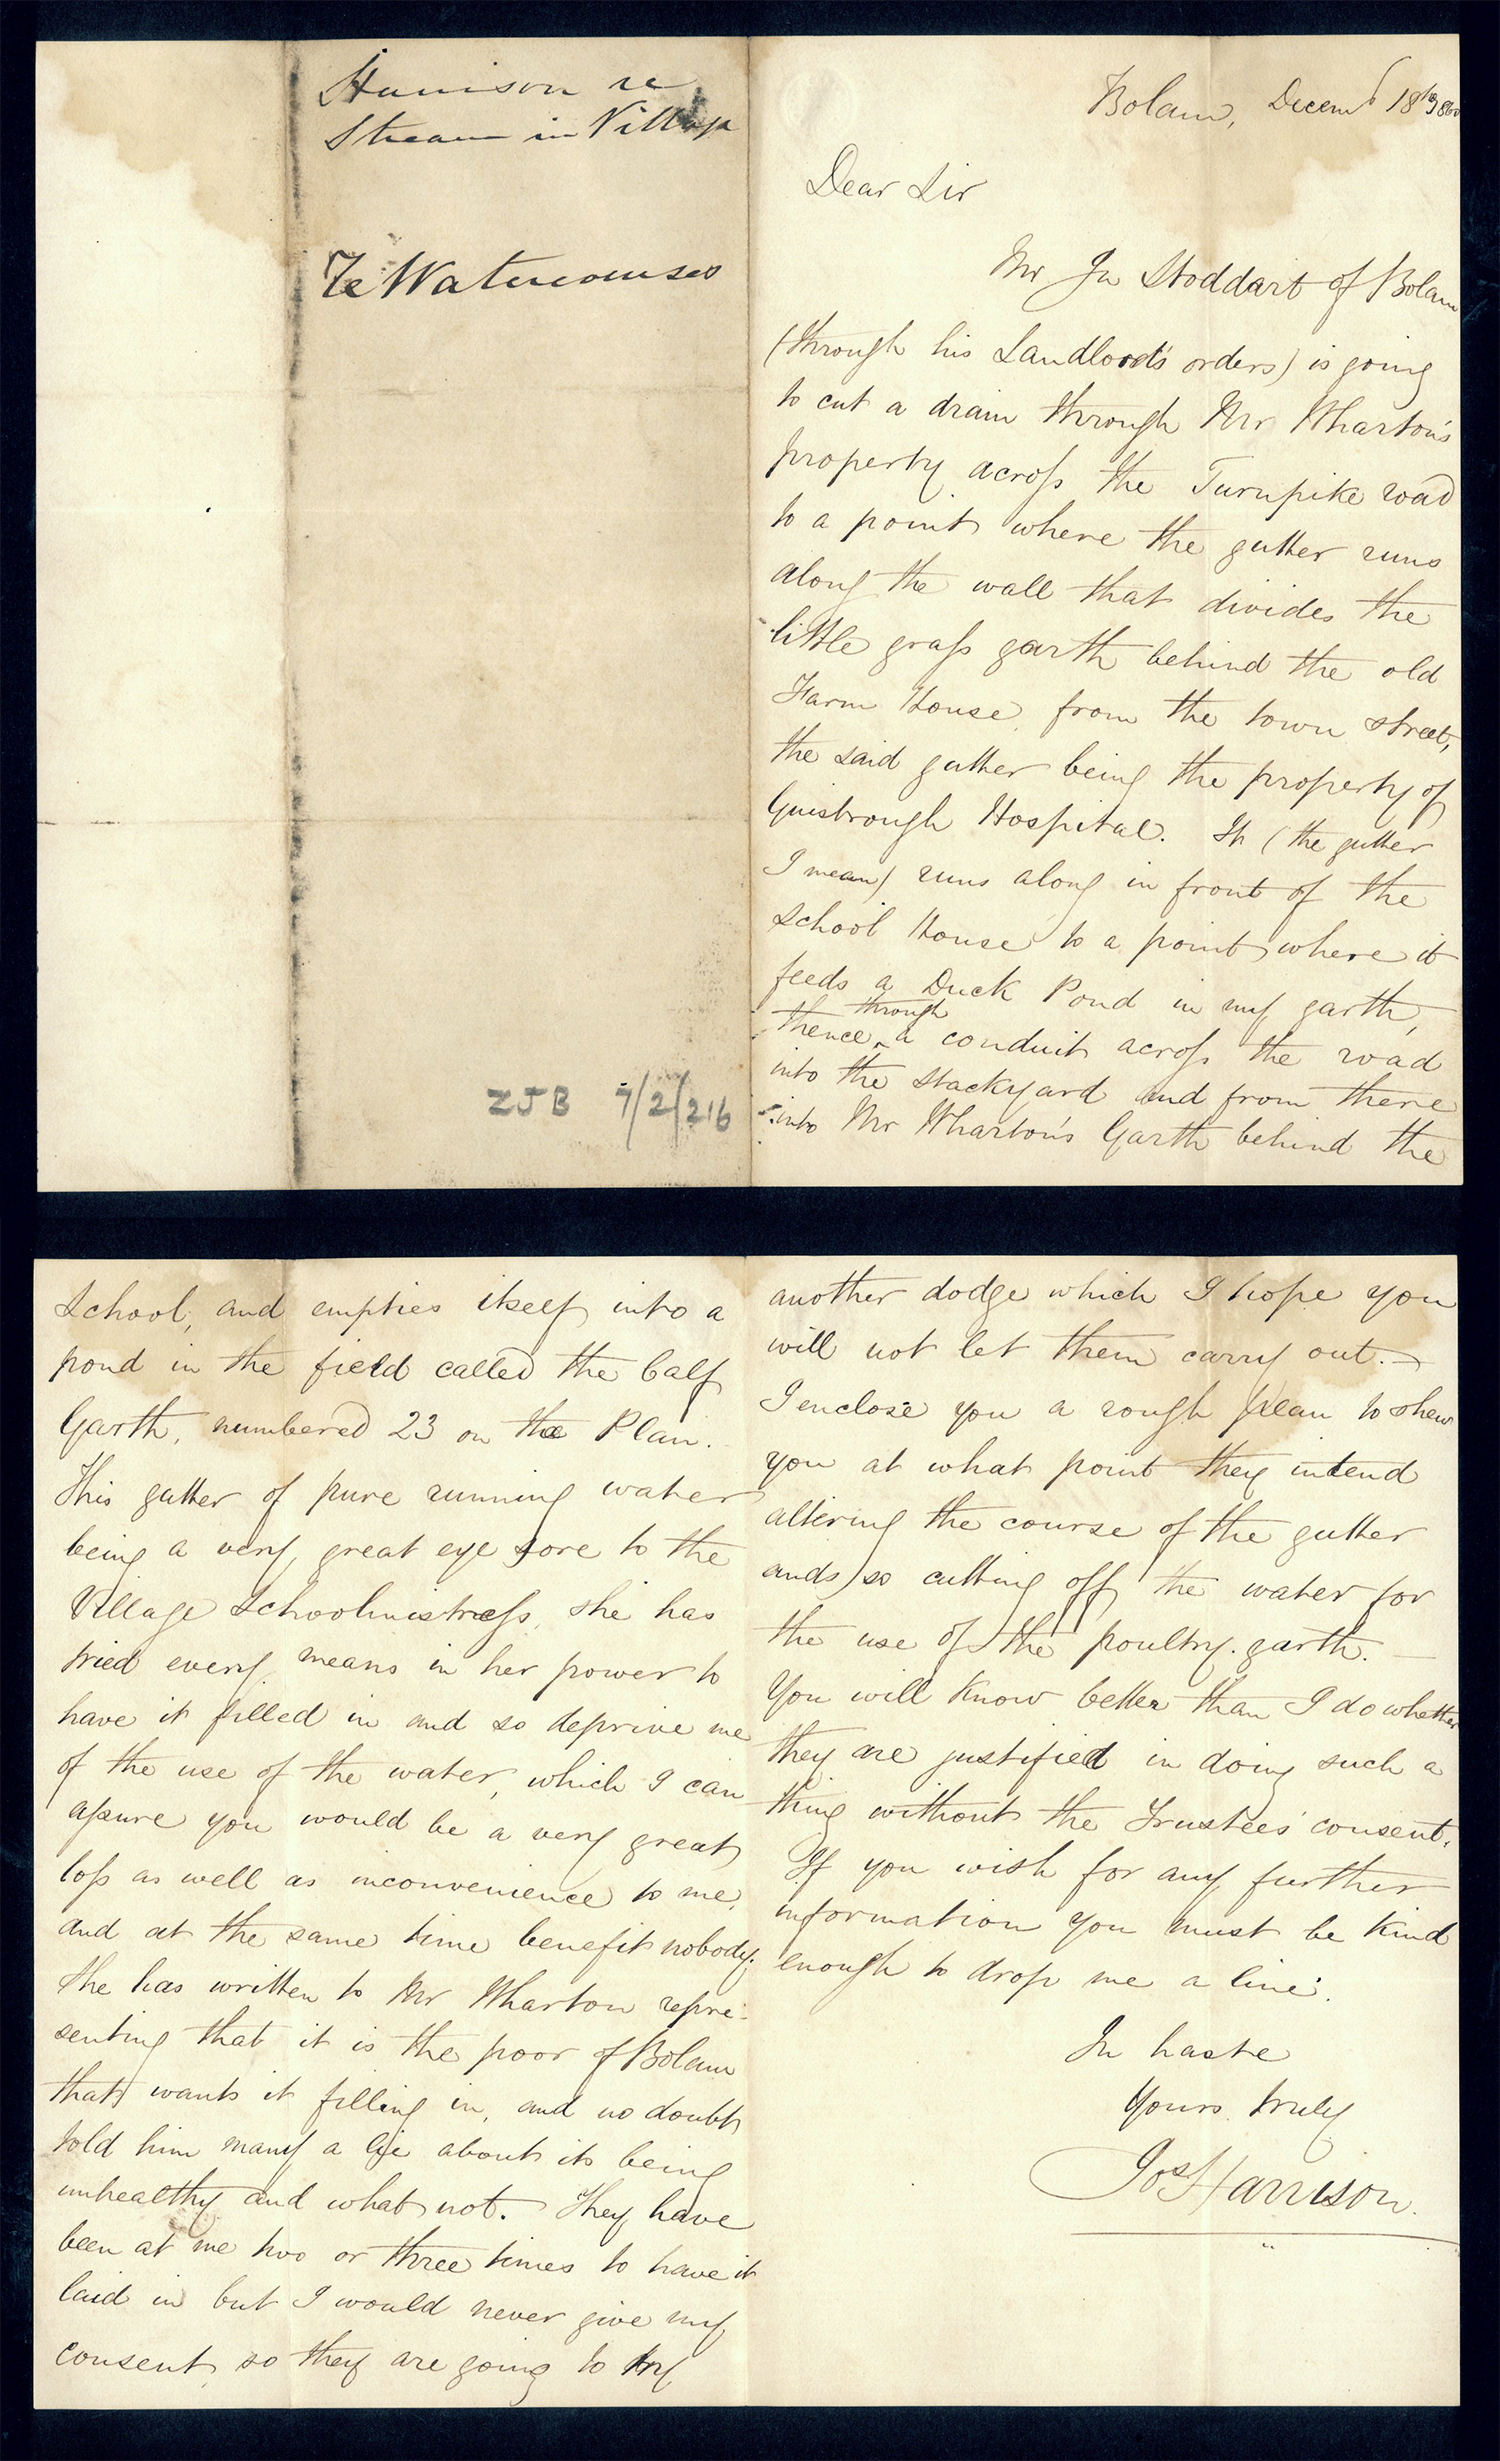 Harrison re
Stream in Village
Re Watercourses
ZJB 7/2/216
Bolam, Decemb 18th 1860
Dear Sir
Mr Jn Stoddart of Bolam
(through his Landlord's orders) is going
to cut a drain through Mr Wharton's
property across the Turnpike road
to a point where the gutter runs
along the wall that divides the
little grass garth behind the old
Farm House from the town street,
the said gutter being the property of
Guisbrough Hospital. It (the gutter
I mean) runs along in front of the
School House to a point where it
feeds a Duck Pond in my garth,
thence through a conduit across the road
into the stackyard and from there
into Mr Wharton's Garth behind the
School, and empties itself into a
pond in the field called the Calf
Garth, numbered 23 on the Plan.
This gutter of pure running water
being a very great eye sore to the
Village Schoolmistress, she has
tried every means in her power to
have it filled in and so deprive me
of the use of the water, which I can
assure you would be a very great
loss as well as inconvenience to me,
and at the same time benefit nobody.
She has written to Mr Wharton repre-
senting that it is the poor of Bolam
that wants it filling in, and no doubt
told him many a lie about its being
unhealthy and what not. They have
been at me two or three times to have it
laid in but I would never give my
consent, so they are going to try
another dodge which I hope you
will not let them carry out. —
I enclose you a rough plan to shew
you at what point they intend
altering the course of the gutter
and so cutting off the water for
the use of the poultry garth. —
You will know better than I do whether
they are justified in doing such a
thing without the Trustees' consent.
If you wish for any further
information you must be kind
enough to drop me a line.
In haste
Yours truly
Jos Harrison.